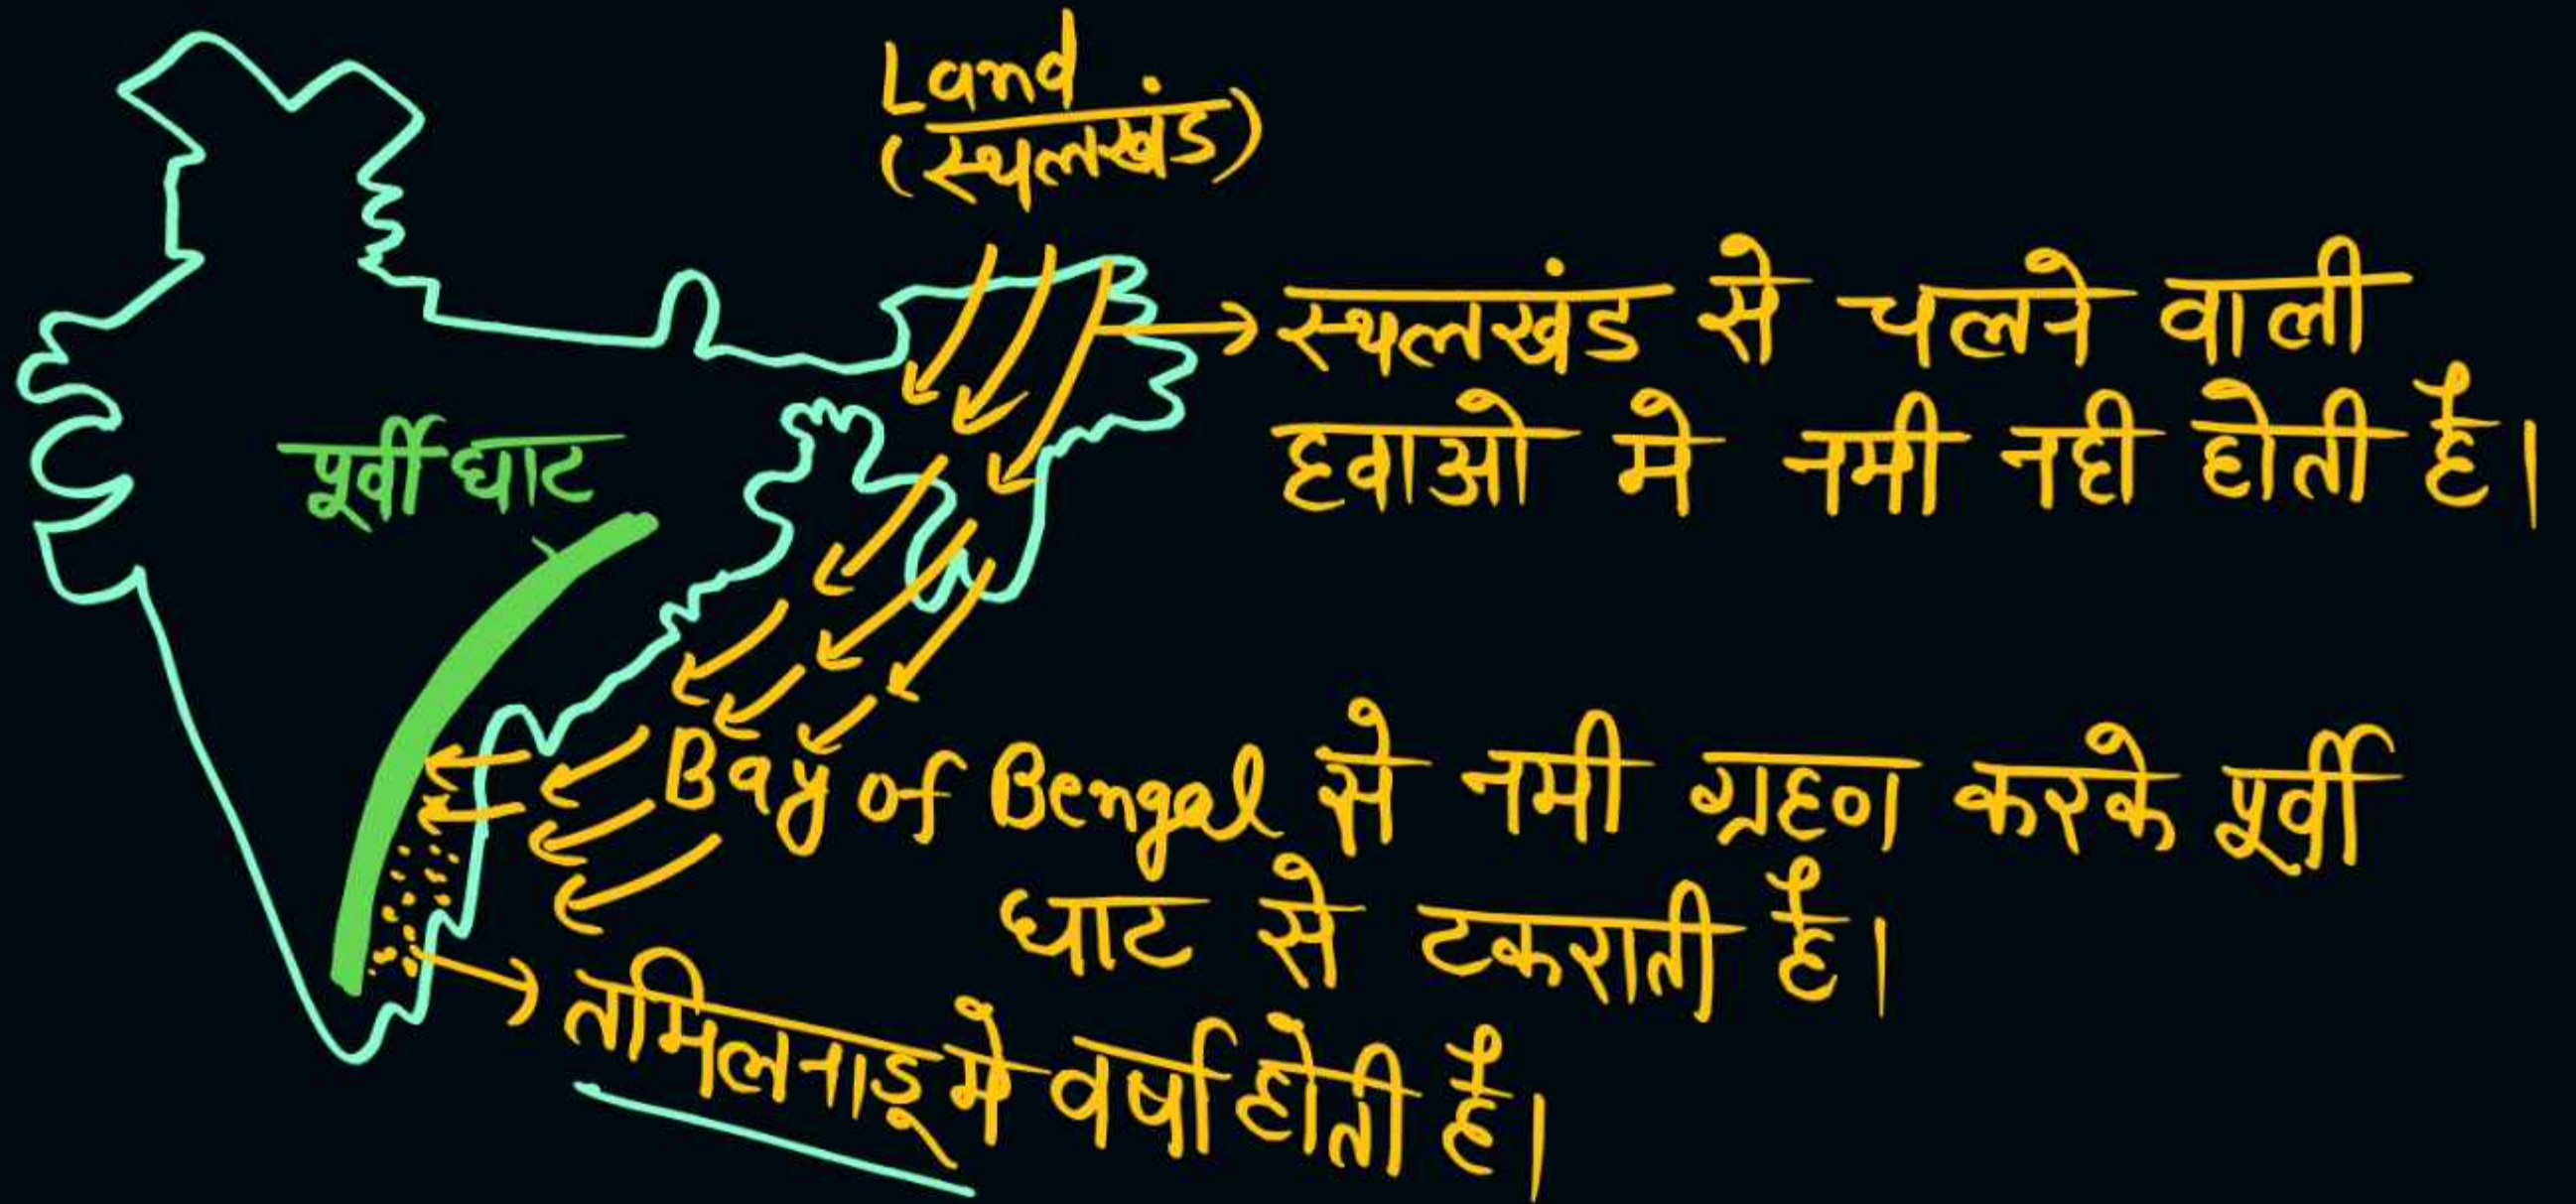 Land
(स्थलखंड)
स्थलखंड से चलने वाली
हवाओ मे नमी नही होती है।
पूर्वी घाट
Bay of Bengal से नमी ग्रहण करके पूर्वी
घाट से टकराती है।
तमिलनाडू मे वर्षा होती है।